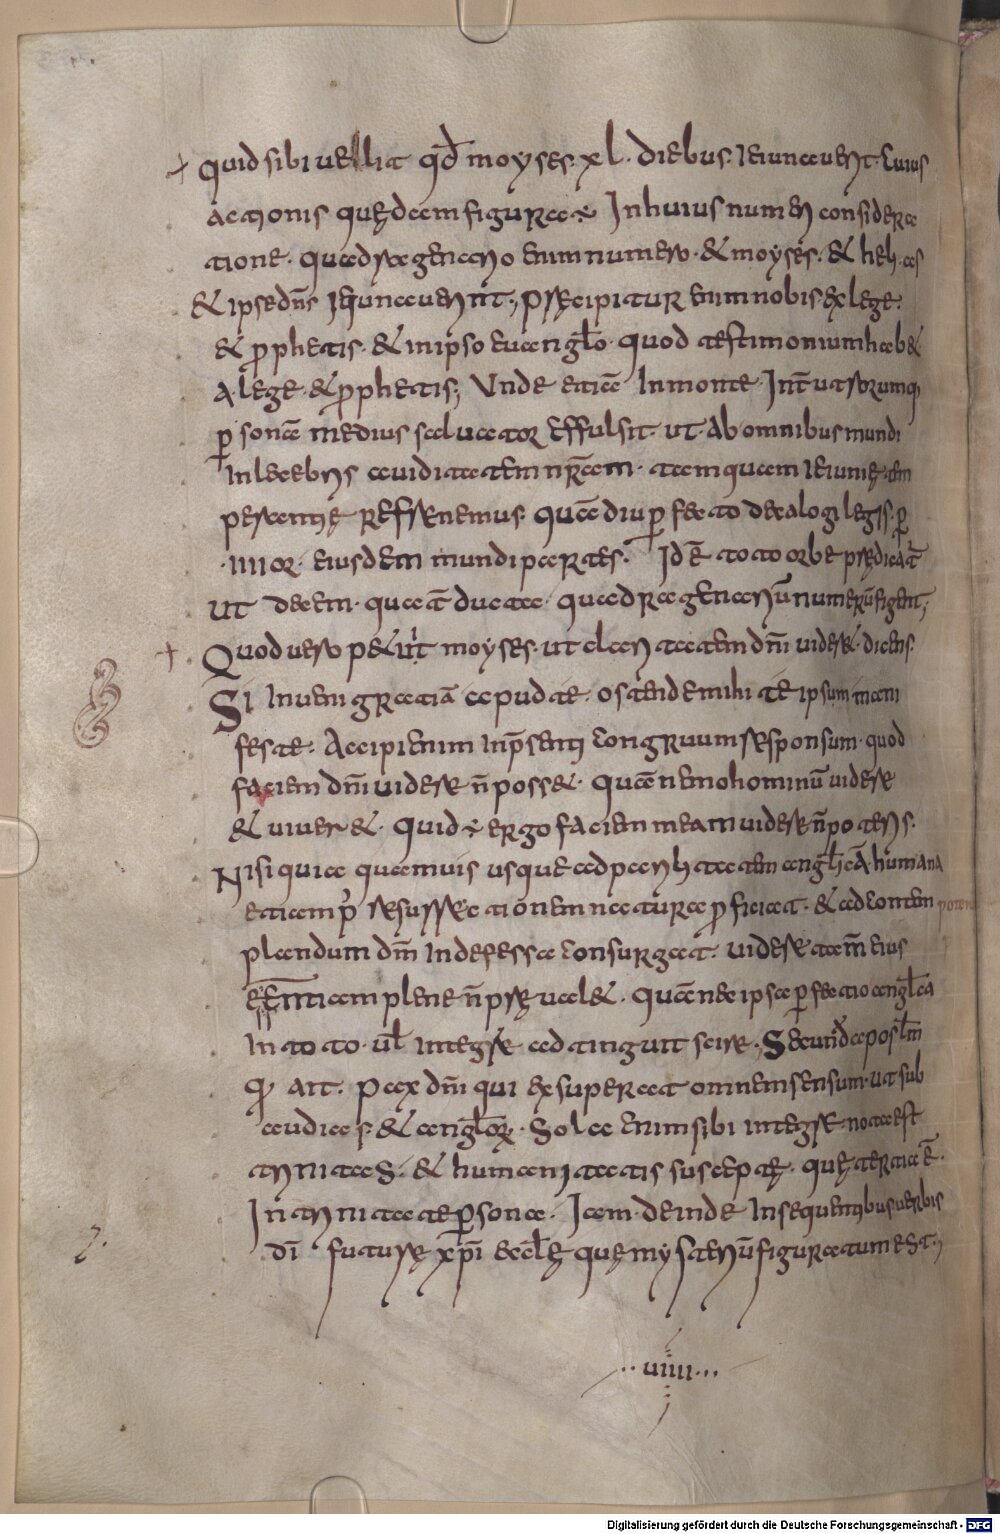 quid sibi uellit qđ moyses xl. diebus ieiunauerit. cuius
actionis quędam figura ÷ In huius numeri considera
tione. quadragenario enim numero. & moyses. & helias
& ipse dn̄s ieiunauerunt; pręcipitur enim nobis ex lege.
& prophetis. & in ipso euanglo. quod testimonium hab&
A lege & prophetis; Unde etiā In monte Int̄ utrorumq;
personā medius saluator effulsit. ut Ab omnibus mundi
Inlecebris auiditatem nr̄am. atem quem
penitentię refrenemus. quādiu perfecto decalogi legis. per
.IIII or. eiusdem mundi partes. Id ē toto orbe prędicat̄
ut decem. quat̄ ducta. quadragenariū numerū figent;
Quod uero petiuit moyses. ut claritatem dn̄i uidere. dicens.
Si Inueni gratiā apud te. ostende mihi te ipsum mani
feste. Accipi enim In p̄senti congruum responsum. quod
faciem dn̄i uidere n̄ poss&. Quā nemo hominū uidere
& uiuer&. Quid ÷ ergo faciem meam uidere n̄ poteris.
Nisi quia quamuis usque ad angl̄icā humana
etiam p̄ resurrectionem natura proficiat. & ad contem
plandum dn̄i Indefessa consurgat. uidere tam̄ eius
plene n̄ pręual&. Quā nec ipsa perfectio angl̄ica
In toto ul̄ integre adtinguit scire. Secundū apos̄l̄m
q' ait. pax dn̄i qui exsuperat omnem sensum. ut sub
audias. & angl̄orum. Sola enim sibi integre nota est
trinitas. & humanitatis susceptę. quę tertia ē.
In trinitate persona. Item deinde In sequentibus uerbis
dī futurę xp̄i eccl̄ę quę mysteriū figuratum est;
..uiiii...
Digitalisierung gefördert durch die Deutsche Forschungsgemeinschaft - DFG